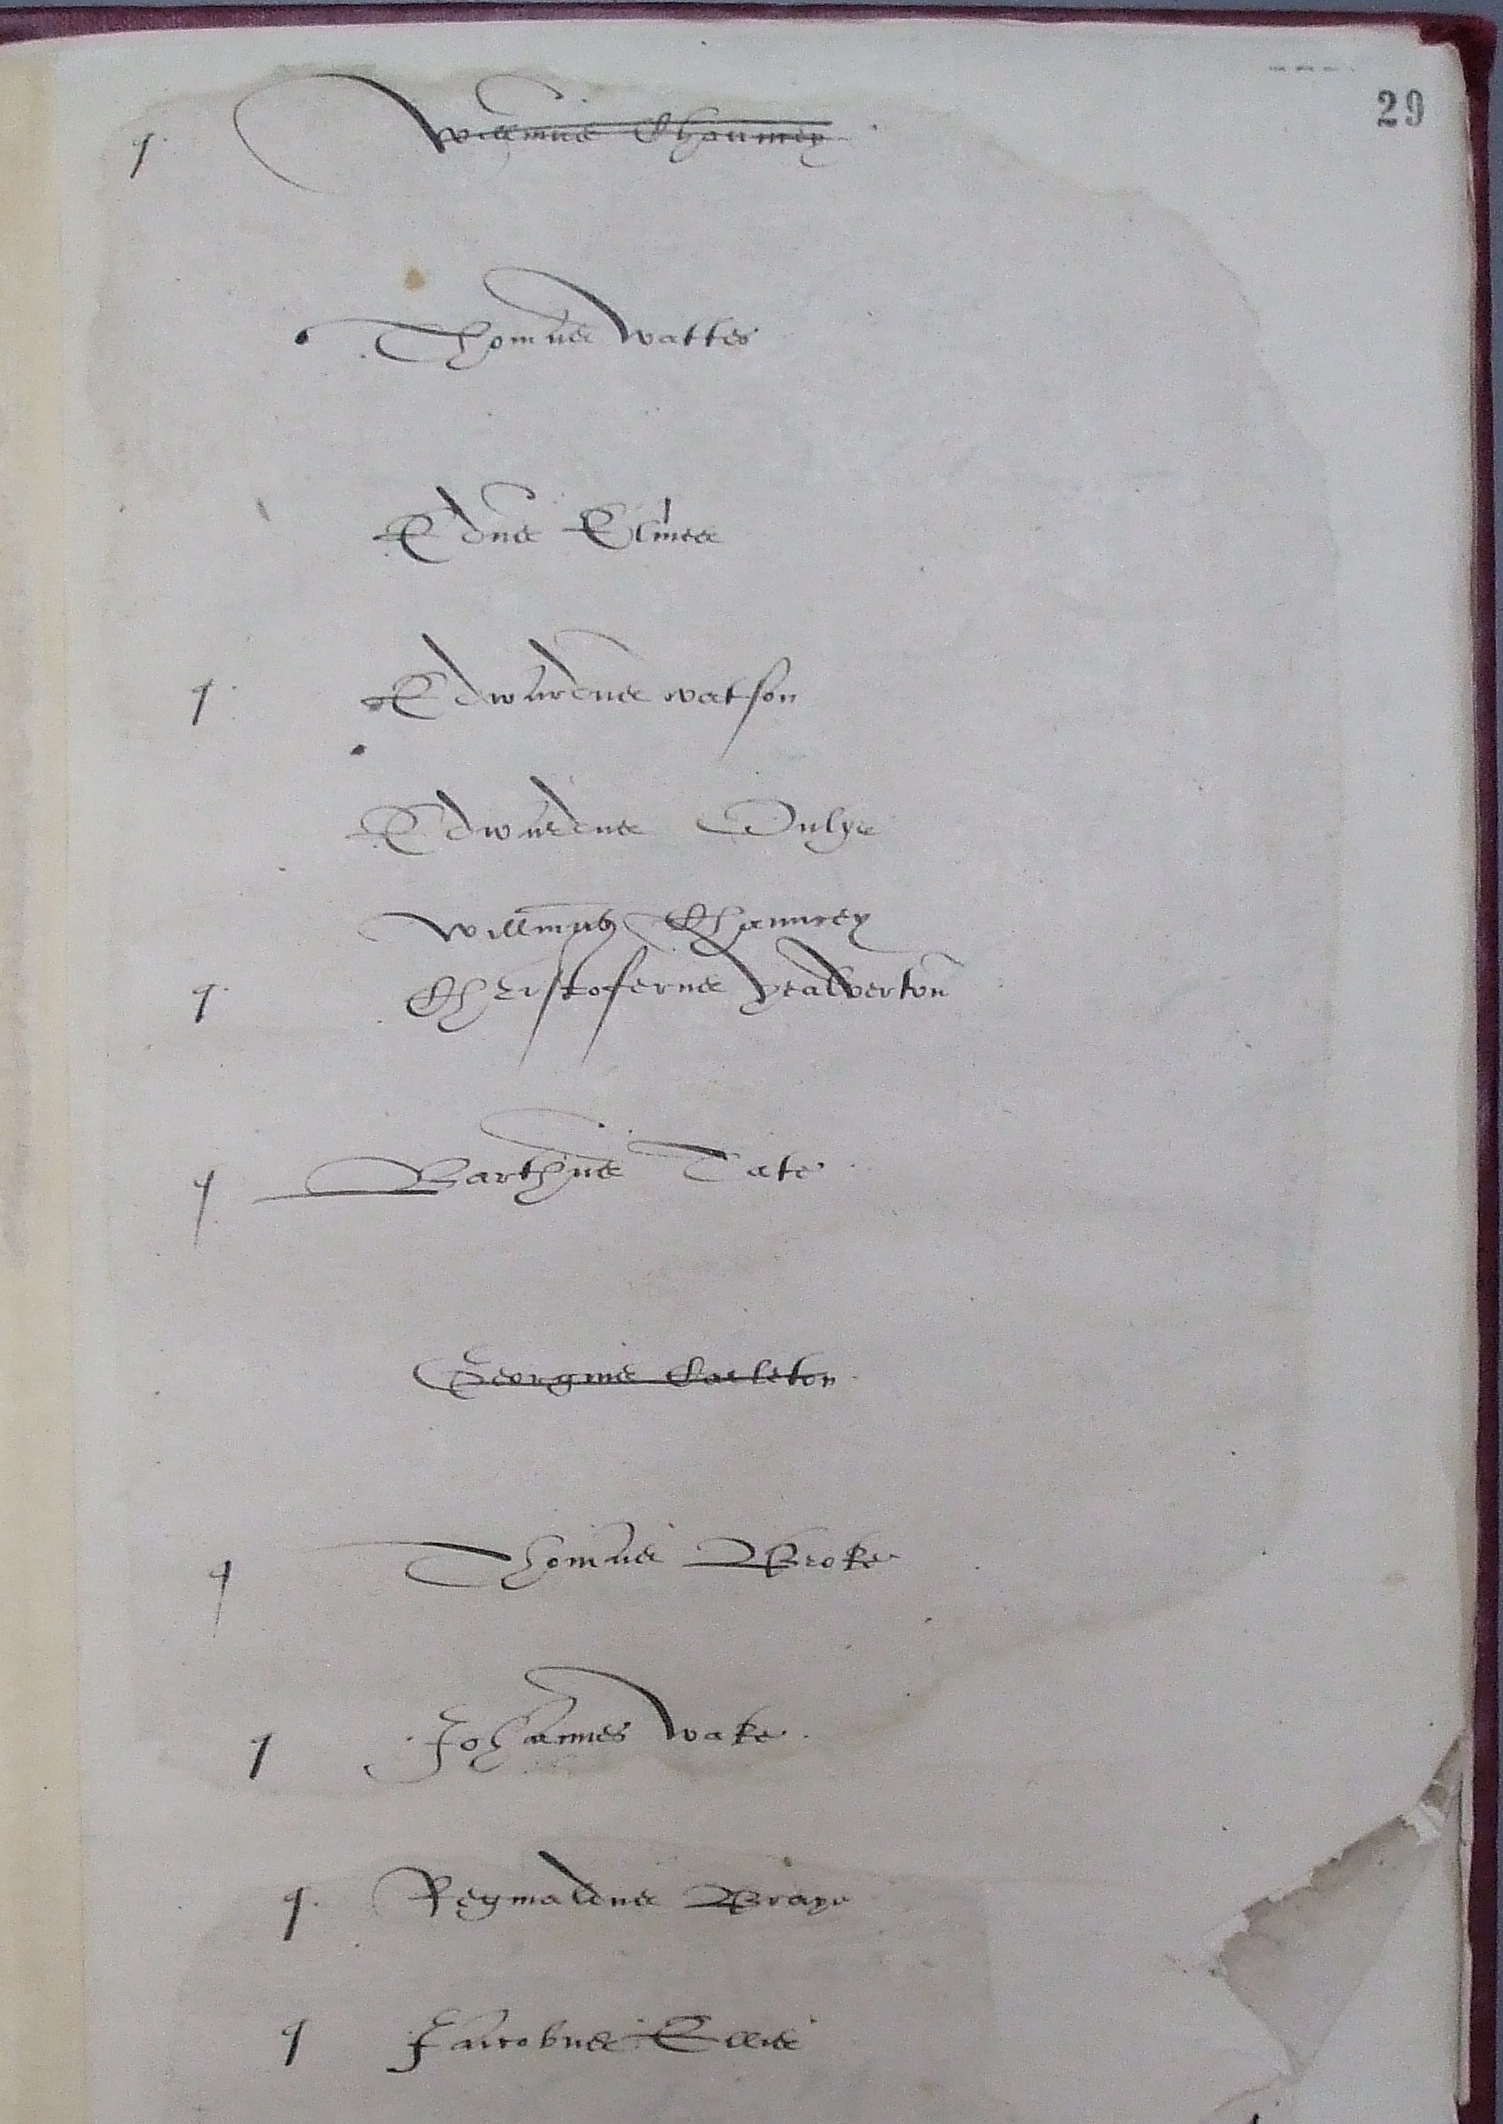 29
q Willmus Chauncy
Thomas Wattes
Edm~us Elmes
q Edwardus Watson
Edwardus Onlye
Willmus Chauncey
q Christoferus yealverton
q Barthus Tate
Georgius Carleton
q Thomas Broke
q Johannes Wake
q Reginaldus Braye
q Jacobus Ellis